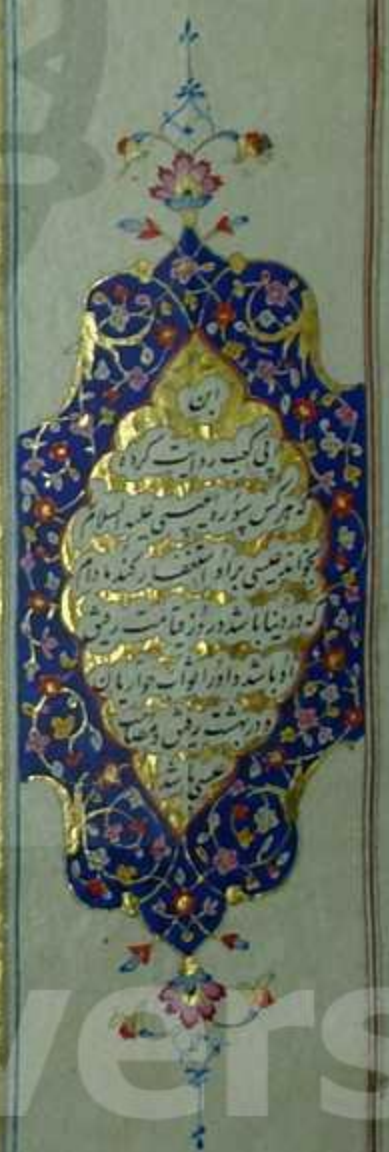 ابن
ابی کعب روایت کرده
که هر کس سوره عیسی علیه السلام
بخواند عیسی برای او استغفار کند مادام
که در دنیا باشد در روز قیامت رفیق
او باشد و او را ثواب حواریان
و در بهشت رفیق و مصاحب
عیسی باشد
vers